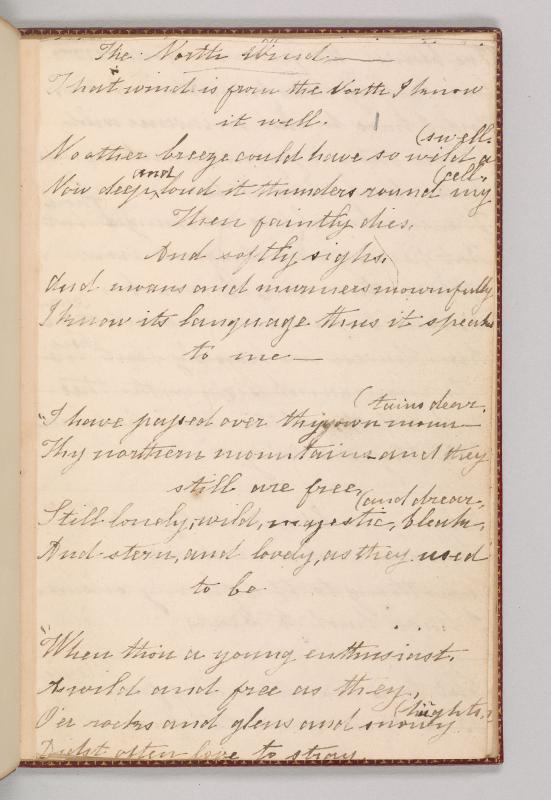 The North Wind
That wind is from the North I know
it well.
(swell.
No other breeze could have so wild a
and (cell.
Now deep, loud it thunders round my
Then faintly dies,
And softly sighs,
And moans and murmers mournfully
I know its language thus it speaks
to me—
(tains dear,
"I have passed over thy own moun—
Thy northern mountains and they
still are free,
(and drear,
Still lonely, wild, majestic, bleak,
And stern, and lovely, as they used
to be
"When thou a young enthusiast.
As wild and free as they,
(hights,
O'er rocks and glens and snowy
Didst often love to stray